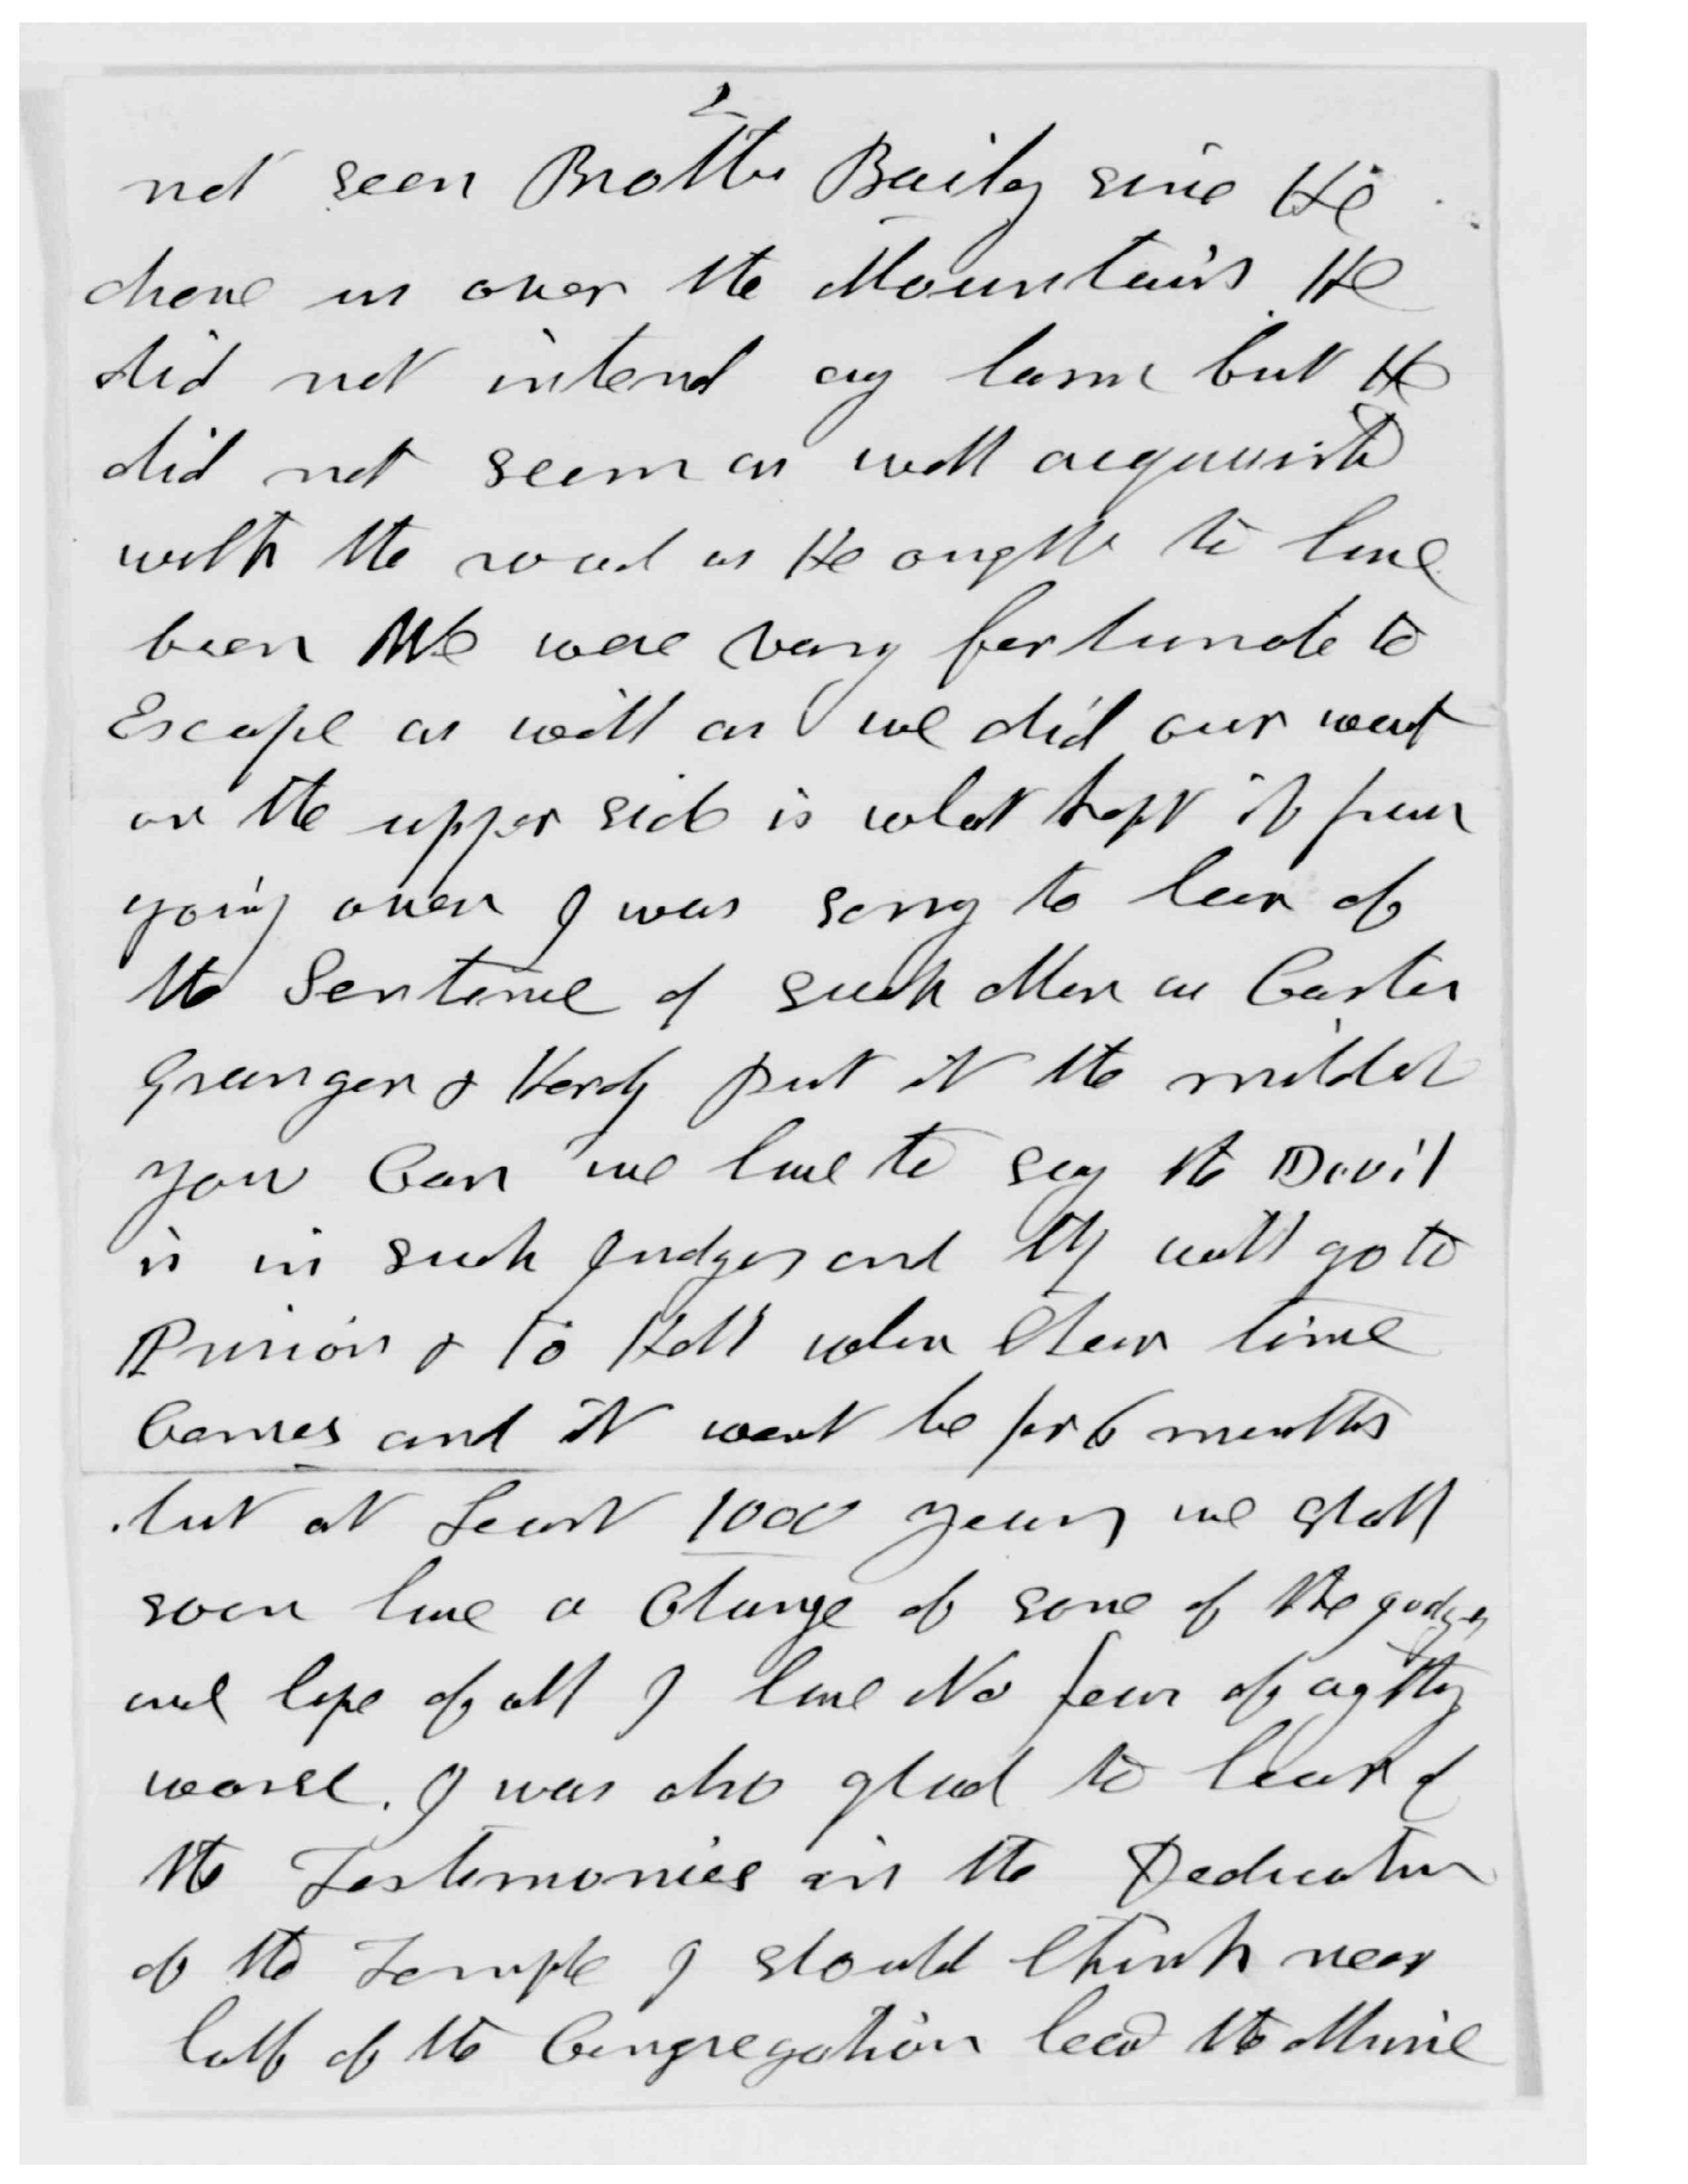 2
not seen Brother Baily since He
drove us over the Mountains He
did not intend any harm but He
did not seem as well acquainted
with the road as He ought to have
been We were very fortunate to
Escape as well as we did our weight
on the upper side is what kept it from
going over I was sorry to hear of
the Sentence of such Men as Carter
Granger & Hardy put it the mildest
you Can we have to say the Devil
is in such Judges and they will go to
Prison & to Hell when their time
Comes and it wont be for 6 months
but at Least 1000 years we shall
soon have a Change of some of the judges
and hope of all I have No fear of anything
worse. I was also glad to hear of
the Testimonies in the Dedication
of the Temple I should think near
half of the Congregation heard the Music